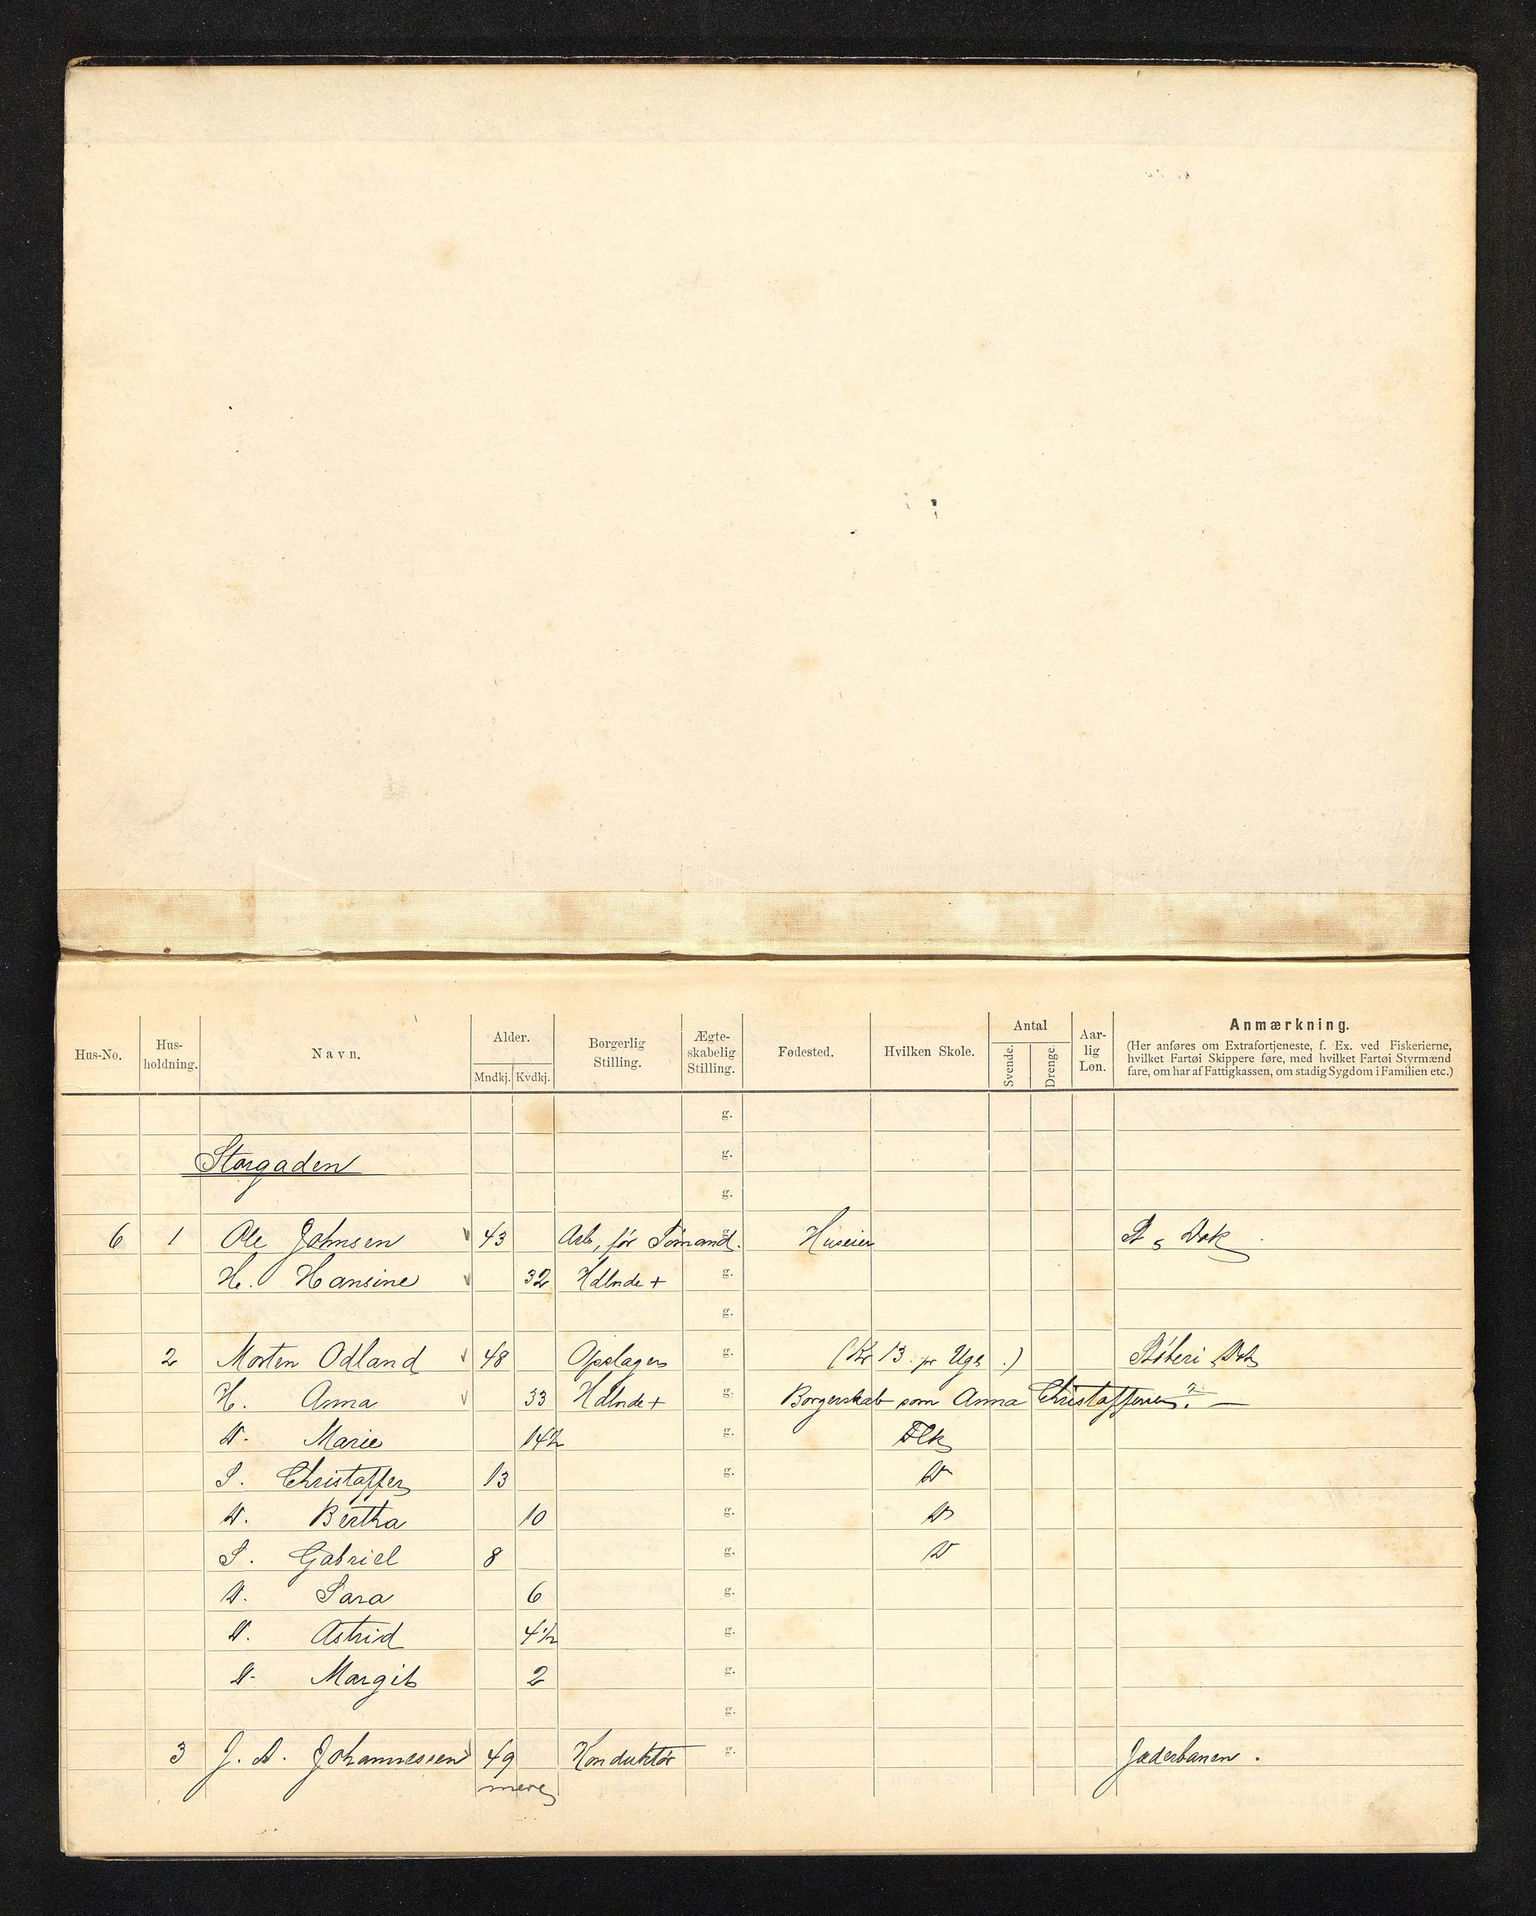 Hus-No. Hus-holdning. Navn. Alder. Mndkj. Kvdkj. Borgerlig Stilling. Ægte-skabelig Stilling. Fødested. Hvilken Skole. Antal Svende. Drenge. Aar-lig Løn. Anmærkning.
(Her anføres om Extrafortjeneste, f. Ex. ved Fiskerierne, hvilket Fartøi Skippere føre, med hvilket Fartøi Styrmænd fare, om har af Fattigkassen, om stadig Sygdom i Familien etc.)
g.
Storgaden g.
g.
6 1 Ole Johnsen 43 Arb, før Sømand. g. Huseier St s Dok
H. Hansine 32 Hdlnde + g.
g.
2 Morten Odland 48 Opslager g. (Kr 13 pr Uge.) Støberi Dok
H. Anna 33 Hdlnde + g. Borgerskab som Anna Christoffersen
D. Marie 14½ g. Flk
S. Christoffer 13 g. D
D. Bertha 10 g. D
S. Gabriel 8 g. D
D. Sara 6 g.
D. Astrid 4½ g.
D. Margit 2 g.
g.
3 J. A. Johannessen 49 Konduktør g. Jæderbanen.
mere